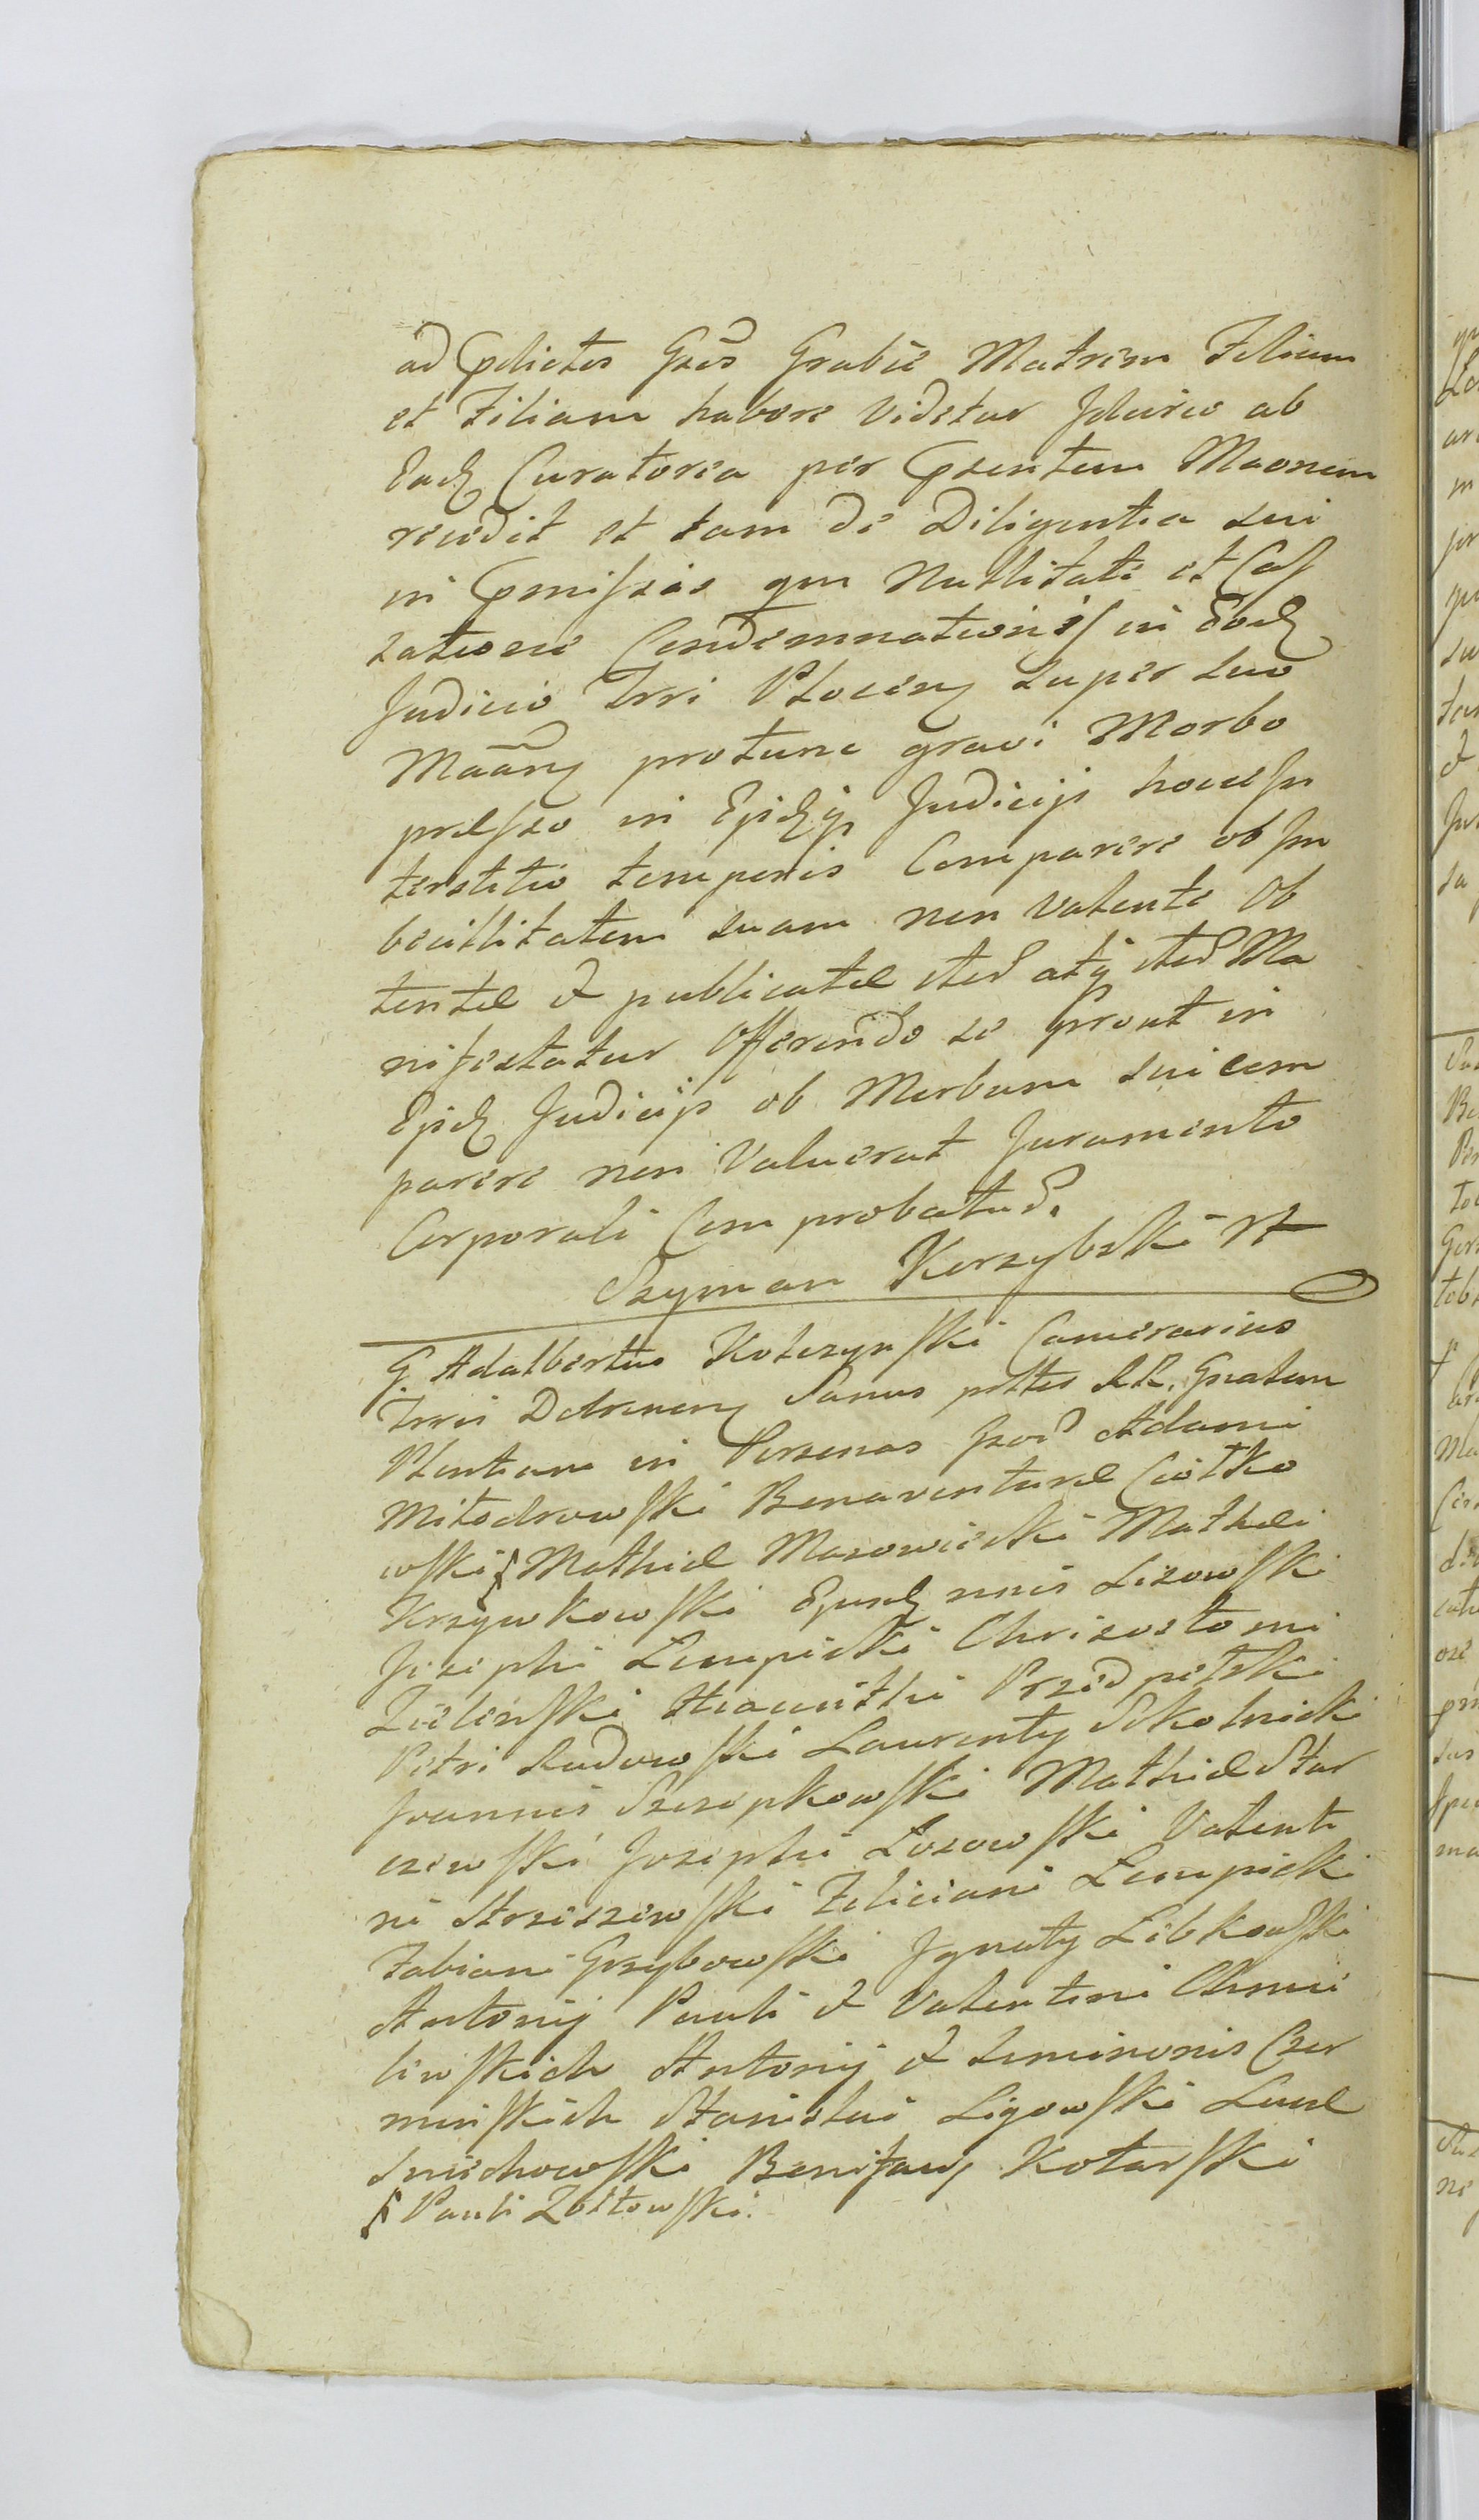 ad Pdictos Gsos Grabie Matrem Filium
et Filiam habere Videtur Idcirco ab
Eadz Curatorea per Psentem Maonem
recedit et tam de Diligentia sui
in Pmissis qm Nullitate et Cas
satione Condemnationis in Eodz
Judicio Trri Plocen super suo
Maan protunc gravi Morbo
presso in Ejdz Judicijs hoc in
terstitio temporis Comparere ob Im
becillitatem suam non Valente Ob
tentae & publicatae ited atq ited Ma
nifestatur Offerendo se prout in
Ejdz Judicijs ob Morbum sui com
parere non Valuerat Juramento
Corporali Comprobatud.
Szyman Korzybski
G. Adalbertus Kolczynski Camerarius
Trris Dobrinen Sanus pttes RR. Gnalem
Plentiam in Personas Gsod Adami
Milodrowski Bonaventurae Ciołko
wski § Mathiae Mazowiecki Mathei
Krzywkowski Ejusdz nnis Lisowski
Josephi Lempicki Chrisostomi
Zielinski Hiacinthi Przedpelski
Petri Rudowski Laurenty Sokolnicki
Joannis Szczepkowski Mathiae Star
czewski Josephi Lozowski Valenti
ni Strzeszewski Feliciani Lempicki
Fabiani Grzybowski Ignaty Lelkowski
Antonij Pauli & Valentini Chmie
liwskich Antonij & Simeonis Czer
minskich Stanislai Ligowski Lucae
Smichowski Bonifacy Kotarski
§ Pauli Zoltowski.